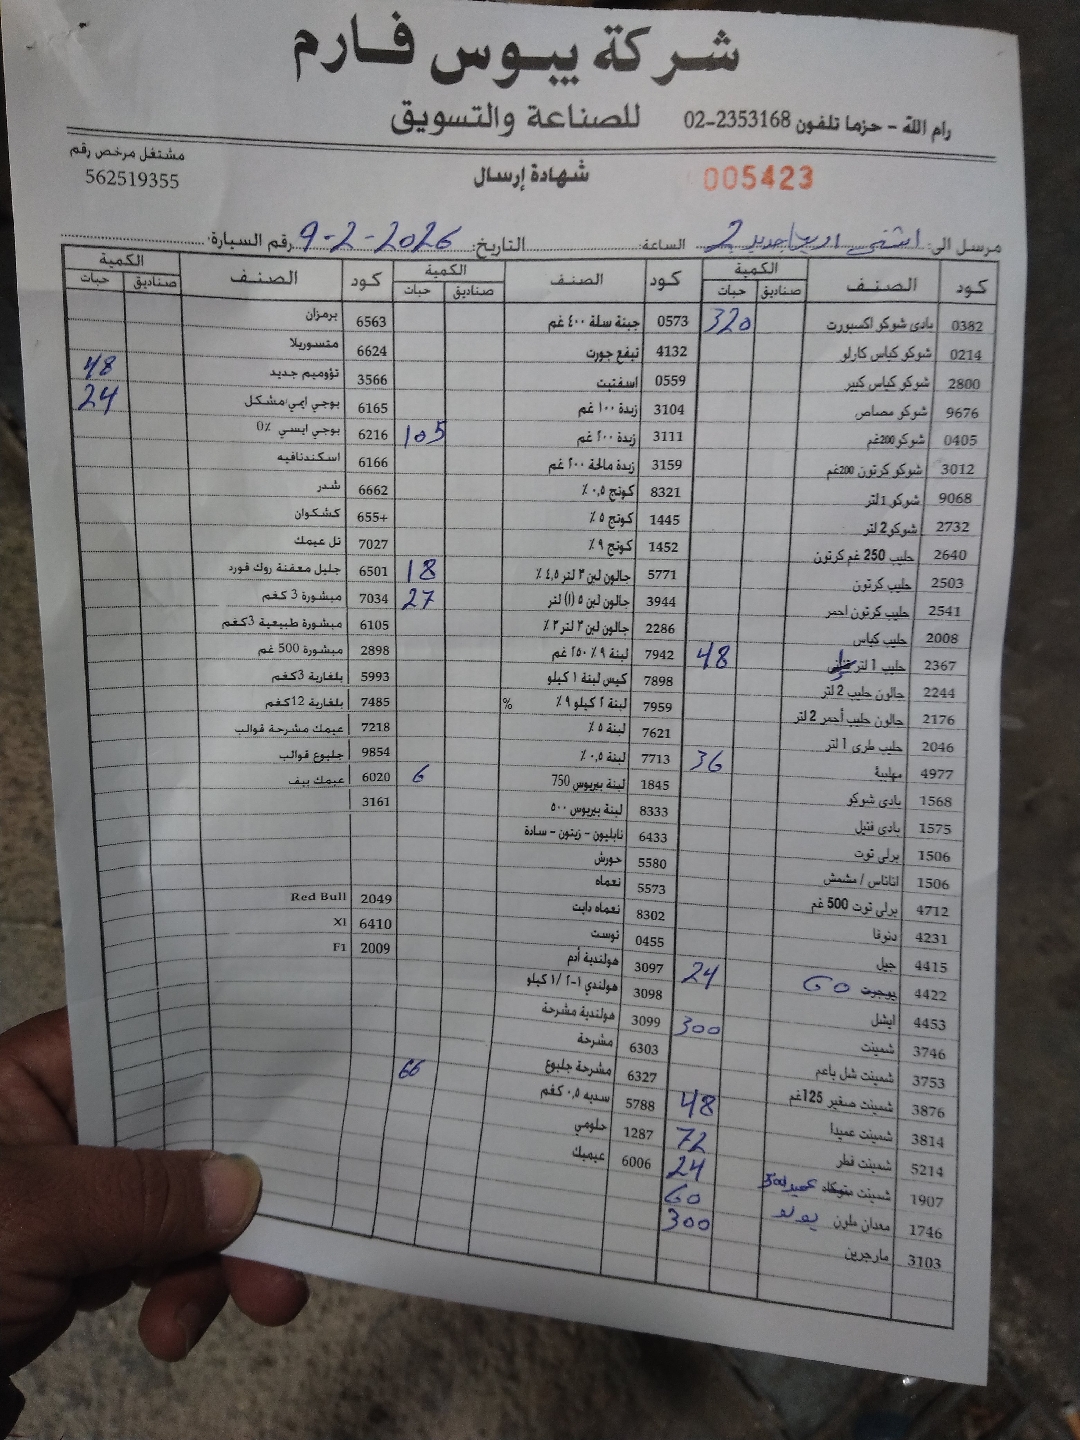 شركة يبوس فارم
للصناعة والتسويق
رام الله - حزما تلفون 02-2353168
مشتغل مرخص رقم
562519355
شهادة إرسال
005423
مرسل الى: الساعة: التاريخ: 9-2-2026 رقم السيارة:
كود الصنف الكمية صناديق حبات
0382 بادي شوكو اكسبورت 320
0214 شوكو كباس كارلو
2800 شوكو كباس كبير
9676 شوكو مصاص
0405 شوكو 200غم
3012 شوكو كرتون 200غم
9068 شوكو 1 لتر
2732 شوكو 2 لتر
2640 حليب 250 غم كرتون
2503 حليب كرتون
2541 حليب كرتون احمر
2008 حليب كباس
2367 حليب 1 لتر 48
2244 جالون حليب 2 لتر
2176 جالون حليب أحمر 2 لتر
2046 حليب طري 1 لتر
4977 مهلبية 36
1568 بادي شوكو
1575 بادي فتيل
1506 برلي توت
1506 اناناس / مشمش
4712 برلي توت 500 غم
4231 دنونا
4415 جيل
4422 يوجرت 60 24
4453 ايشل
3746 شمينت 300
3753 شمينت شل باعم
3876 شمينت صغير 125غم
3814 شمينت عميدا 48
5214 شمينت قطر 72
1907 شمينت 500 24
1746 معدان ملرن يولو 60
3103 مارجرين 300
كود الصنف الكمية صناديق حبات
0573 جبنة سلة ٤٠٠ غم
4132 تيفع جورت
0559 اسفتيت
3104 زبدة ١٠٠ غم
3111 زبدة ٢٠٠ غم 105
3159 زبدة مالحة ٢٠٠ غم
8321 كوتج ٠,٥ ٪
1445 كوتج ٥ ٪
1452 كوتج ٩ ٪
5771 جالون لبن ٣ لتر ٤,٥ ٪ 18
3944 جالون لبن ٥ (١) لتر 27
2286 جالون لبن ٣ لتر ٣ ٪
7942 لبنة ٩ ٪ ٢٥٠ غم
7898 كيس لبنة ١ كيلو
7959 لبنة ٢ كيلو ٩ ٪ %
7621 لبنة ٥ ٪
7713 لبنة ٠,٥ ٪
1845 لبنة بيريوس 750 6
8333 لبنة بيريوس ٥٠٠
6433 نابليون - زيتون - سادة
5580 حورش
5573 نعماه
8302 نعماه دايت
0455 توست
3097 هولندية أدم
3098 هولندي ١-٢ /١ كيلو
3099 هولندية مشرحة
6303 مشرحة
6327 مشرحة جلبوع 66
5788 سدبه ٠,٥ كغم
1287 حلومي
6006 عيميك
كود الصنف الكمية صناديق حبات
6563 برمزان
6624 متسوريلا
3566 تؤوميم جديد 48
6165 يوجي ايمي/مشكل 24
6216 يوجي ايسي 0٪
6166 اسكندنافيه
6662 شدر
655+ كشكوان
7027 تل عيمك
6501 جليل معفنة روك فورد
7034 مبشورة 3 كغم
6105 مبشورة طبيعية 3كغم
2898 مبشورة 500 غم
5993 بلغارية 3كغم
7485 بلغارية 12كغم
7218 عيمك مشرحة قوالب
9854 جلبوع قوالب
6020 عيمك بيف
3161
2049 Red Bull
6410 Xl
2009 F1